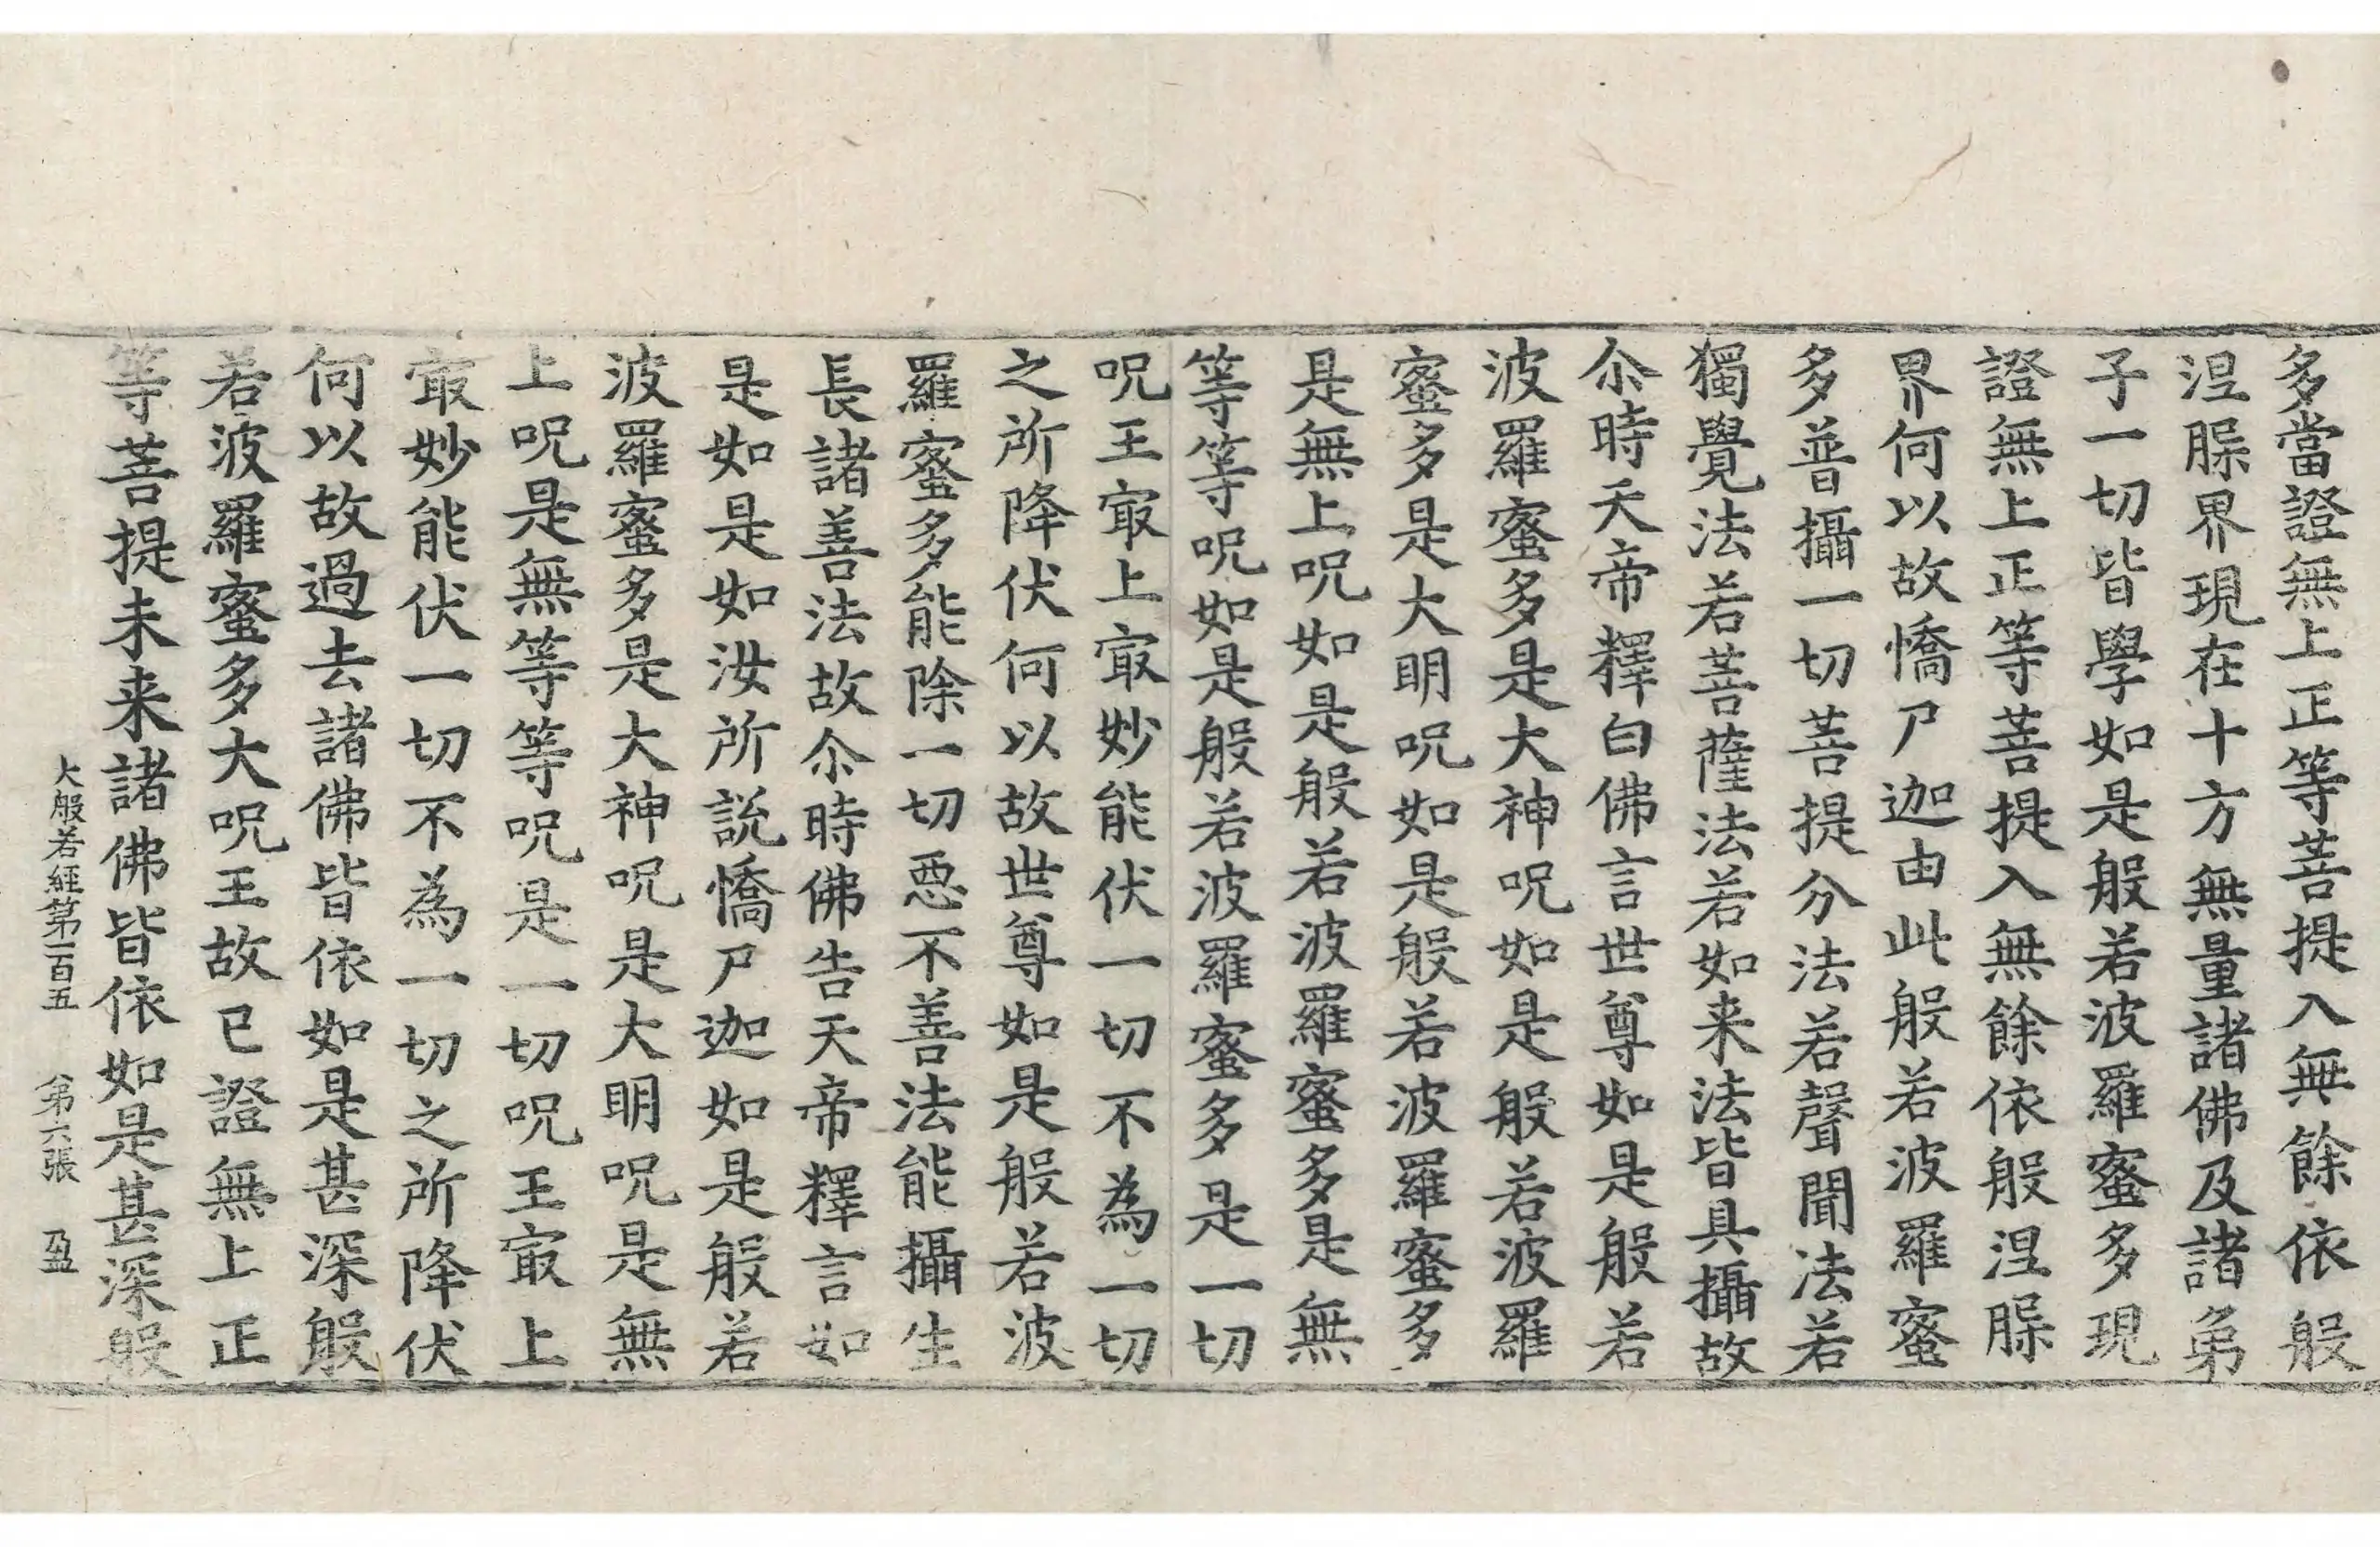 多當證無上正等菩提入無餘依般
涅䏶界現在十方無量諸佛及諸弟
子一切皆學如是般若波羅蜜多現
證無上正等菩提入無餘依般涅䏶
界何以故憍尸迦由此般若波羅蜜
多普攝一切菩提分法若聲聞法若
獨覺法若菩薩法若如来法皆具攝故
尒時天帝釋白佛言世尊如是般若
波羅蜜多是大神呪如是般若波羅
蜜多是大明呪如是般若波羅蜜多
是無上呪如是般若波羅蜜多是無
等等呪如是般若波羅蜜多是一切
呪王㝡上㝡妙能伏一切不為一切
之所降伏何以故世尊如是般若波
羅蜜多能除一切惡不善法能攝生
長諸善法故尒時佛告天帝釋言如
是如是如汝所説憍尸迦如是般若
波羅蜜多是大神呪是大明呪是無
上呪是無等等呪是一切呪王㝡上
㝡妙能伏一切不為一切之所降伏
何以故過去諸佛皆依如是甚深般
若波羅蜜多大呪王故已證無上正
等菩提未来諸佛皆依如是甚深般
大般若經第一百五 第六張 盈